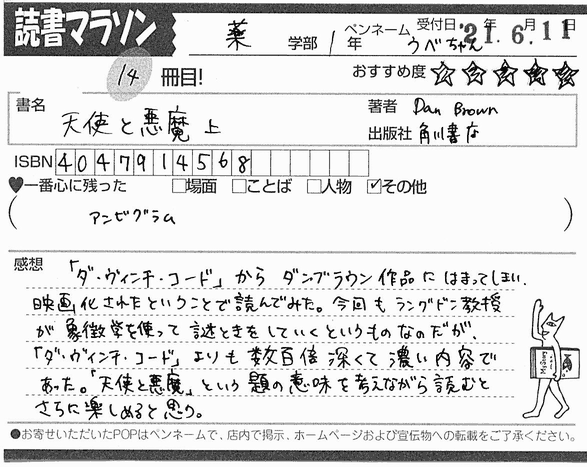 読書マラソン
薬 学部 1 年 ペンネーム うべちゃん 受付日 '21年 6月 11日
14 冊目! おすすめ度 ☆☆☆☆☆
書名 天使と悪魔 上
著者 Dan Brown
出版社 角川書店
ISBN 4047914568
♥一番心に残った □場面 □ことば □人物 ☑その他
(アンビグラム)
感想 「ダ・ヴィンチ・コード」から ダンブラウン作品にはまってしまい、
映画化されたということで読んでみた。今回もラングドン教授
が象徴学を使って謎ときをしていくというものなのだが、
「ダ・ヴィンチ・コード」よりも数百倍深くて濃い内容で
あった。「天使と悪魔」という題の意味を考えながら読むと
さらに楽しめると思う。
●お寄せいただいたPOPはペンネームで、店内で掲示、ホームページおよび宣伝物への転載をご了承ください。